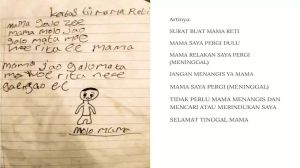 KERTAS TII MAMA RETI
MAMA GALO ZEE
MAMA MOLO JA'O
GALO MATA MAE
WOE RITA EE MAMA
MAMA JAO GALO MATA
MAE WOE RITA NEE
GAE NGAO EE
MOLO MAMA
Artinya:
SURAT BUAT MAMA RETI
MAMA SAYA PERGI DULU
MAMA RELAKAN SAYA PERGI
(MENINGGAL)
JANGAN MENANGIS YA MAMA
MAMA SAYA PERGI (MENINGGAL)
TIDAK PERLU MAMA MENANGIS DAN
MENCARI ATAU MERINDUKAN SAYA
SELAMAT TINGGAL MAMA